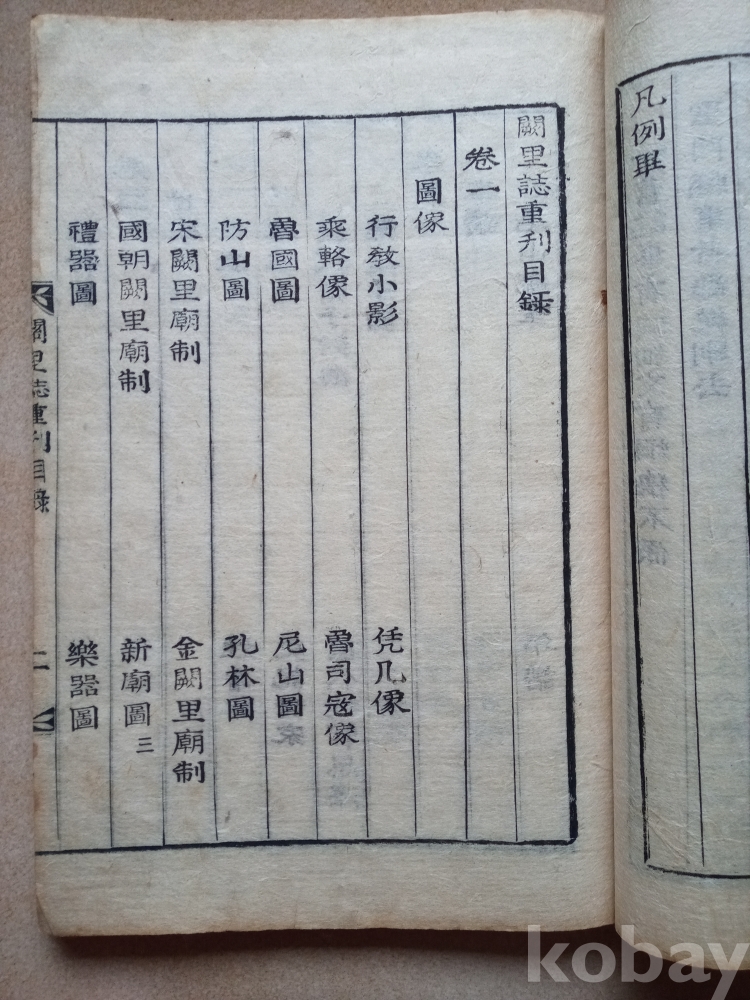 凡例畢
闕里誌重刋目錄
卷一
圖像
行敎小影 凭几像
乘輅像 魯司寇像
魯國圖 尼山圖
防山圖 孔林圖
宋闕里廟制 金闕里廟制
國朝闕里廟制 新廟圖三
禮器圖 樂器圖
闕里誌重刋目錄 二
kobay